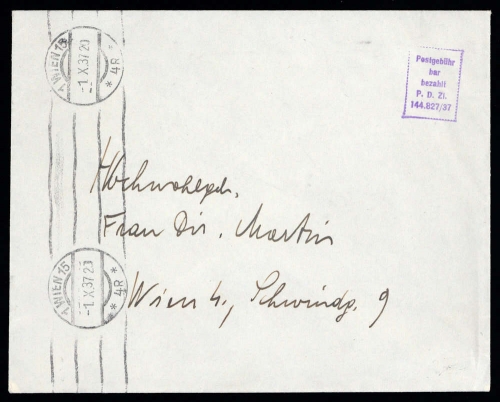 1 WIEN 15
-1.X.37 20
* 4R *
Postgebühr
bar
bezahlt
P. D. Zl.
144.827/37
Hochwohlgeb.
Frau Dir. Martin
Wien 4., Schwindg. 9
1 WIEN 15
-1.X.37 20
* 4R *